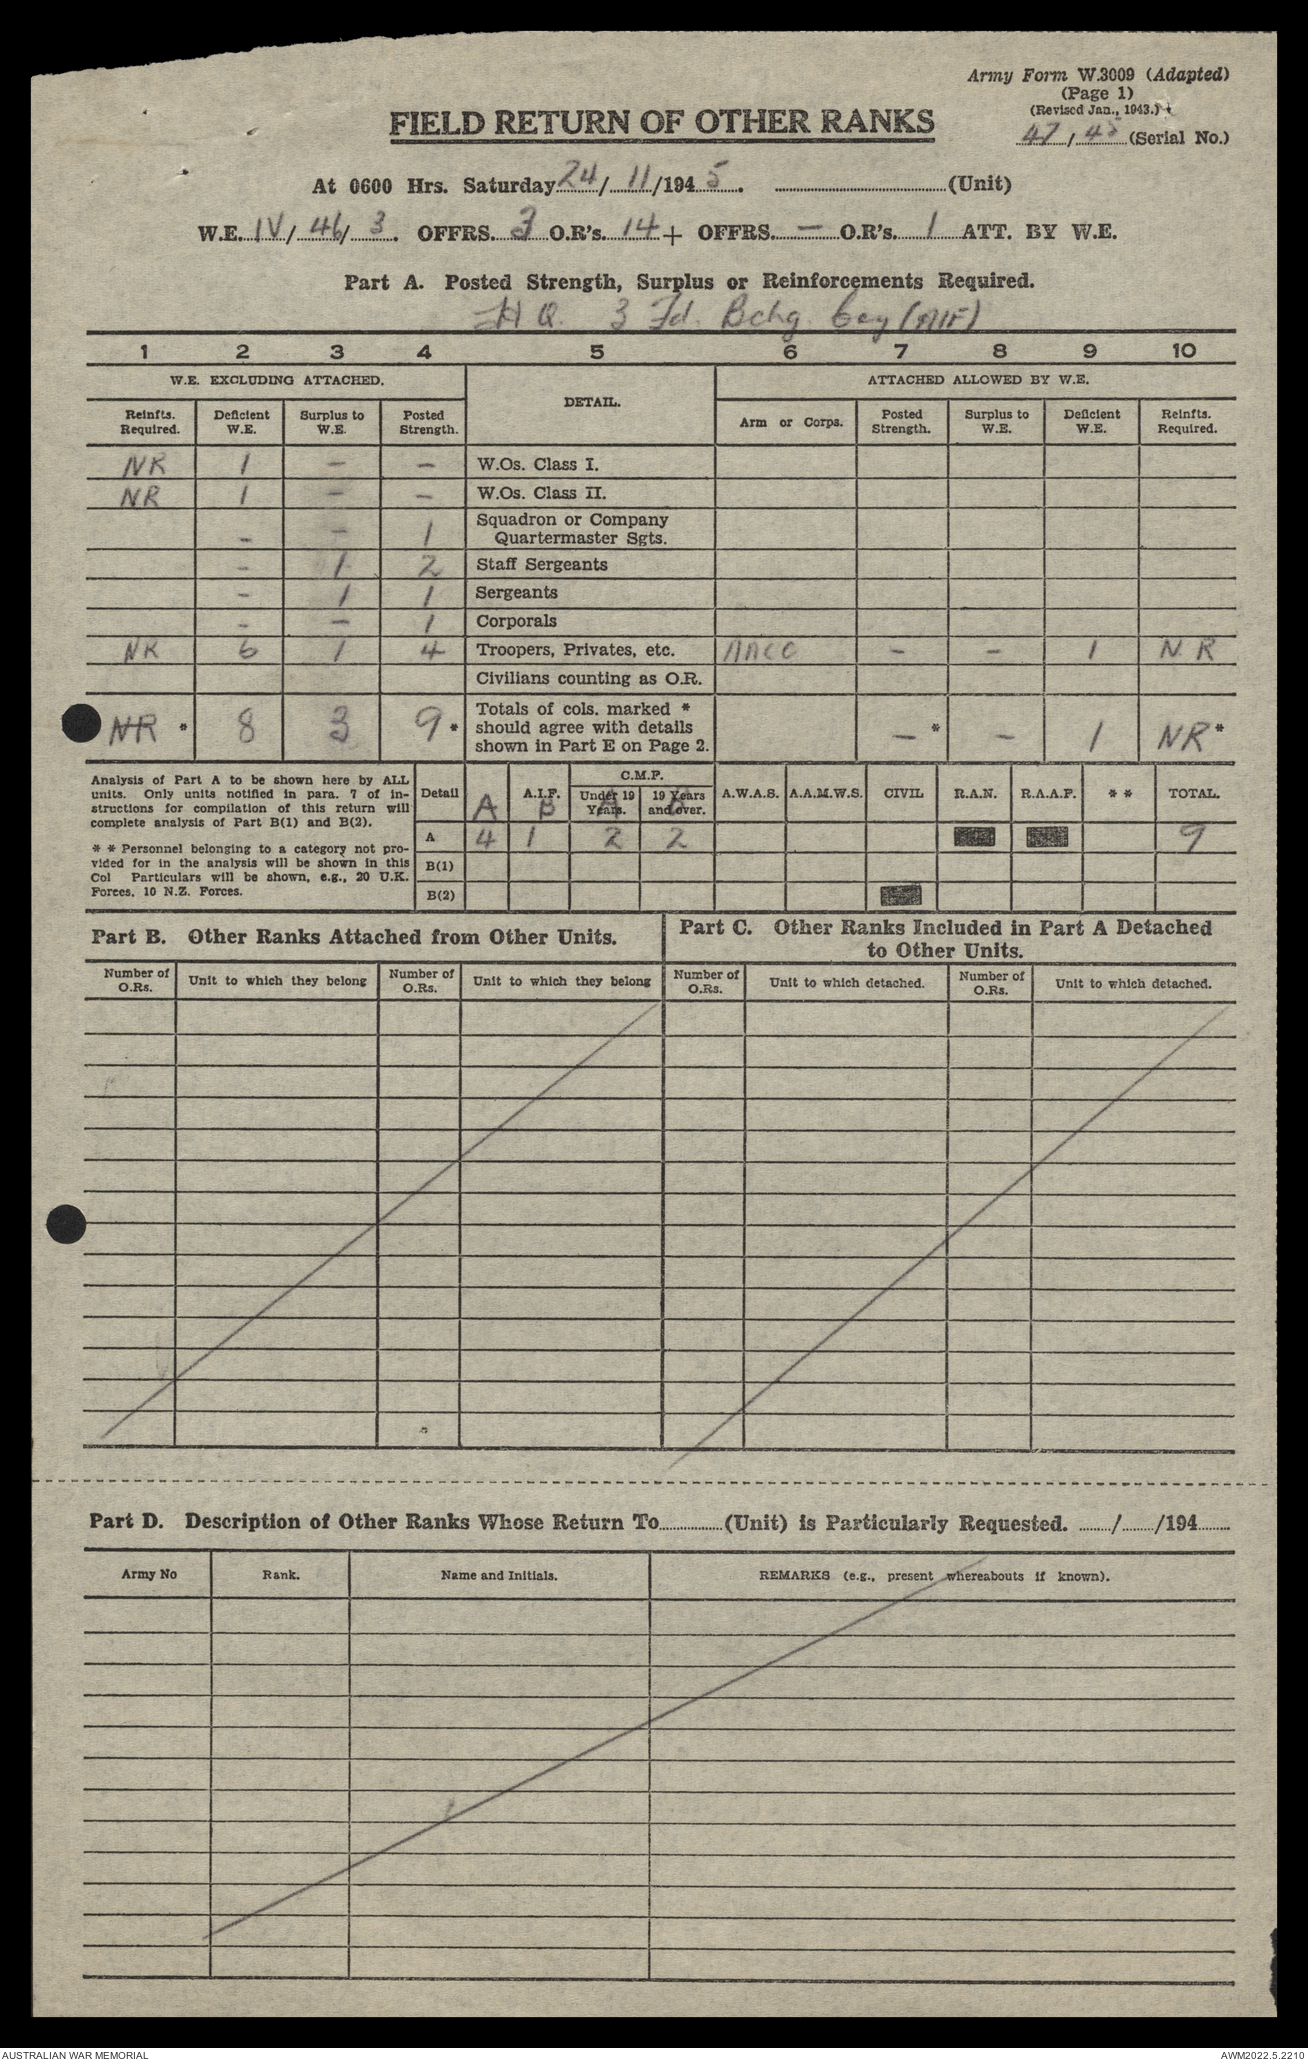 Army Form W.3009 (Adapted)
(Page 1)
(Revised Jan., 1943.)
FIELD RETURN OF OTHER RANKS
47/45 (Serial No.)
At 0600 Hrs. Saturday 24/11/1945. (Unit)
W.E. IV/46/3. OFFRS. 3 O.R's. 14 + OFFRS. — O.R's. 1 ATT. BY W.E.
Part A. Posted Strength, Surplus or Reinforcements Required.
HQ 3 Fd. Bchg Coy (AIF)
1 2 3 4 5 6 7 8 9 10
W.E. EXCLUDING ATTACHED. DETAIL. ATTACHED ALLOWED BY W.E.
Reinfts. Required. Deficient W.E. Surplus to W.E. Posted Strength. Arm or Corps. Posted Strength. Surplus to W.E. Deficient W.E. Reinfts. Required.
NR 1 – – W.Os. Class I.
NR 1 – – W.Os. Class II.
– – 1 Squadron or Company Quartermaster Sgts.
– 1 2 Staff Sergeants
– 1 1 Sergeants
– – 1 Corporals
NR 6 1 4 Troopers, Privates, etc. AACC – – 1 NR
Civilians counting as O.R.
NR * 8 3 9 * Totals of cols. marked * should agree with details shown in Part E on Page 2. – * – 1 NR *
Analysis of Part A to be shown here by ALL
units. Only units notified in para. 7 of in-
structions for compilation of this return will
complete analysis of Part B(1) and B(2).
* * Personnel belonging to a category not pro-
vided for in the analysis will be shown in this
Col Particulars will be shown, e.g., 20 U.K.
Forces, 10 N.Z. Forces.
Detail A.I.F. C.M.F. A.W.A.S. A.A.M.W.S. CIVIL R.A.N. R.A.A.F. * * TOTAL.
Under 19 Years. 19 Years and over.
A B A B
A 4 1 2 2 9
B(1)
B(2)
Part B. Other Ranks Attached from Other Units.
Part C. Other Ranks Included in Part A Detached
to Other Units.
Number of O.Rs. Unit to which they belong Number of O.Rs. Unit to which they belong Number of O.Rs. Unit to which detached. Number of O.Rs. Unit to which detached.
Part D. Description of Other Ranks Whose Return To (Unit) is Particularly Requested. / /194
Army No Rank. Name and Initials. REMARKS (e.g., present whereabouts if known).
AUSTRALIAN WAR MEMORIAL AWM2022.5.2210